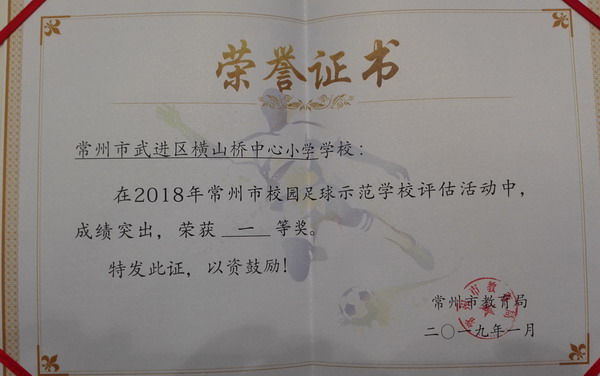 荣誉证书
常州市武进区横山桥中心小学学校：
在2018年常州市校园足球示范学校评估活动中，
成绩突出，荣获 一 等奖。
特发此证，以资鼓励！
常州市教育局
二〇一九年一月